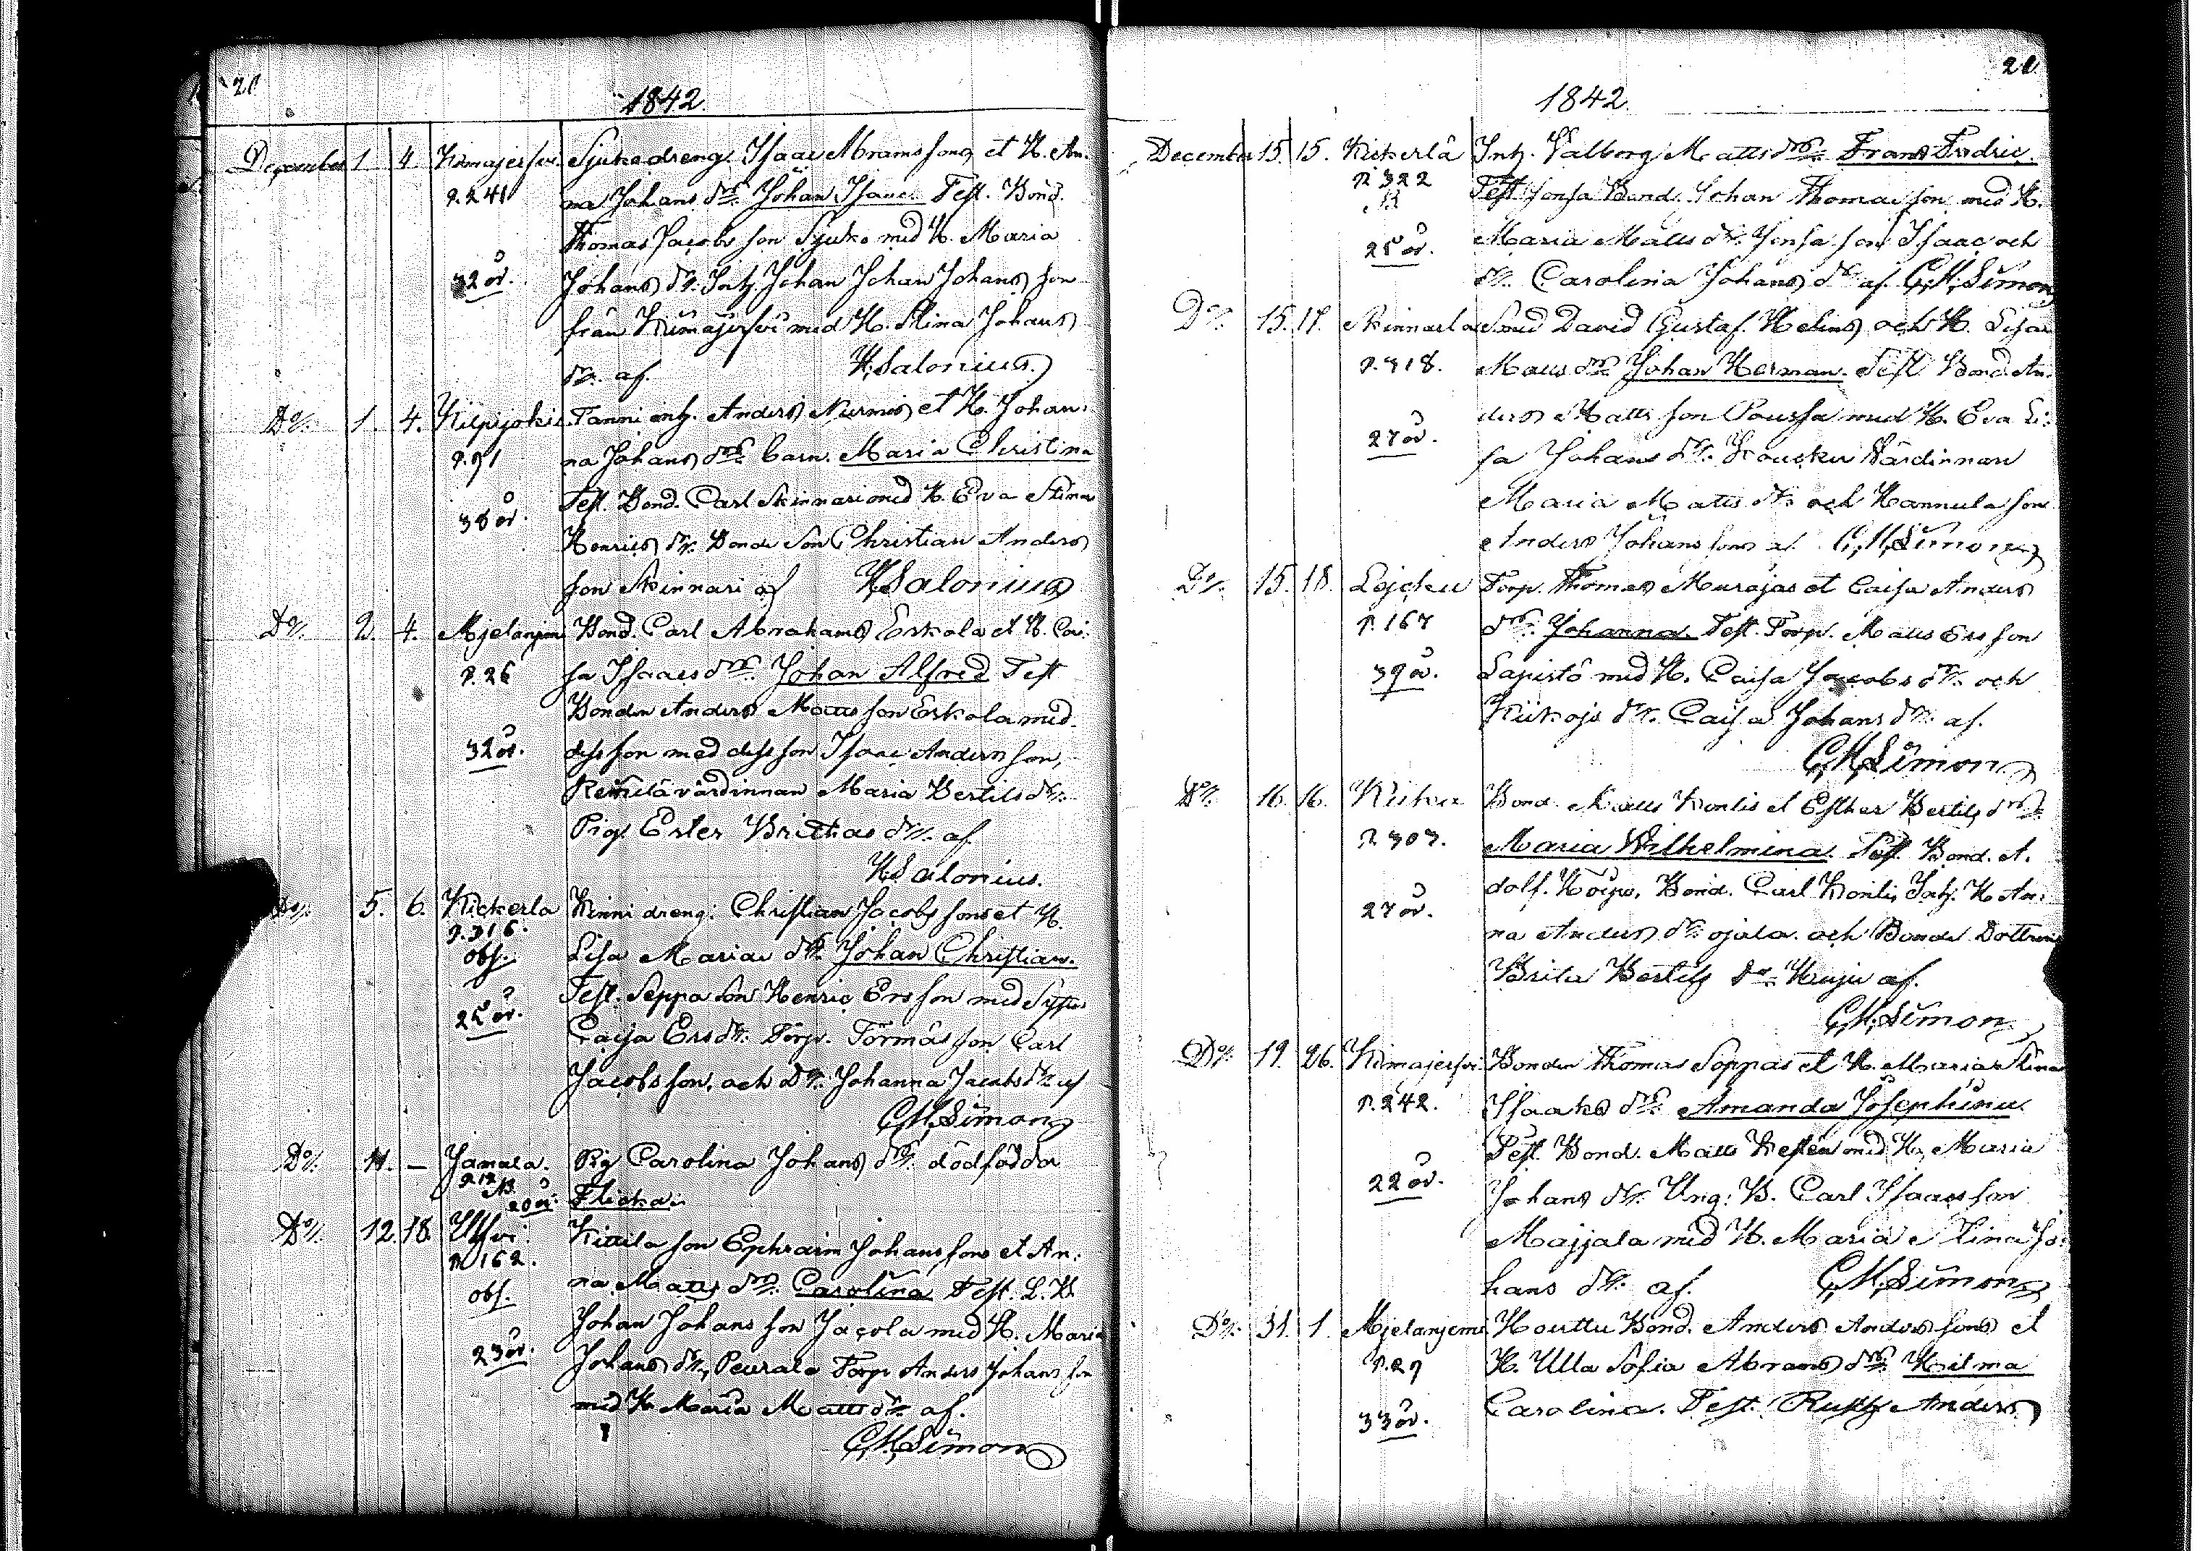 20
1842.
December 1. 4. Kimajerfvi Sjuka dreng Isaac Abrams sons et H. An-
p. 241 na Johans dr: Johan Isaac Test. Bond.
Thomas Jacobs son Sjuko med H. Maria
32 år. Johans dr. Inh. Johan Johan Johans son
från Kiimajerfvi med H. Stina Johans
dr. af. HSalonius.
Do 1. 4. Kilpijokis Tanni inh. Anders Nurmis et H. Johan-
p. 91 na Johans dr barn. Maria Christina
38 år. Test. Bond. Carl Skinnari med H. Eva Stina
Henrics dr. Bonde Son Christian Anders
son Skinnari af HSalonius
Do 2. 4. Mjelanjem Bond. Carl Abrahams Erkola et H. Cai-
p. 26 sa Isaacs dr. Johan Alfred Test
Bonden Anders Matts son Erkola med
32 år. dess son med dess son Isaac Anders son,
värdinnan Maria Bertils dr.
Pig. Ester Brittas dr. af.
HSalonius.
Do 5. 6. Kickerla Kinni dreng: Christian Jacobs sons et H.
p. 316.
obs. Lisa Marias dr. Johan Christian.
Test. Seppa son Henric Ers son med Syster
25 år. Caisa Ers dr. Torp. Tormäs son Carl
Jacobs son, och Dr: Johanna Jacobs dr af
CMSimon
Do 11. — Jamala. Pig Carolina Johans dr. dödfödda
p. 212
20 år. Flicka.
Do 12. 18. Ulfvi Kittila son Ephraim Johans sons et An-
p. 162.
obs. na Matts dr. Carolina Test. L. B
Johan Johans son Jacola med H. Maria
23 år. Johans dr, Peurala Torp. Anders Johans son
med H. Maria Matts dr. af.
CMSimon
20
1842.
December 15. 15. Kickerlä Inh. Valborg Matts dr: Frans Fredric.
p. 322 Test Bond. Johan Thomas son med H.
25 år. Maria Matts dr. son Isaac och
dr. Carolina Johans dr af. CMSimon
Do 15. 17. Skinnarla Smed David Gustaf Helins och H. Lisa
p. 318. Matts dr Johan Herman. Test. Bond. An-
ders Matts son Poussa med H. Eva Li-
27 år. sa Johans dr. Värdinnan
Maria Matts dr och Hannula son
Anders Johans sons af. CMSimon
Do 15. 18. Torp. Thomas Murajas et Caisa Anders
p. 167 dr. Johanna. Test. Torp. Matts Ers son
39 år. Lapistö med H. Caisa Jacobs dr. och
dr. Caisa Johans dr. af.
CMSimon
Do 16. 16. Bond. Matts Kontis et Esther Bertils dr
p. 303. Maria Wilhelmina. Test. Bond. A-
dolf. Bond. Carl Kontis, Inh. H. An-
27 år. na Anders dr. Ojala. och Bonde Dottren
Brita Bertils dr. af.
CMSimon
Do 19. 26. Kimajerfvi Bonden Thomas Soppas et H. Maria Stina
p. 242. Isaaks dr. Amanda Josephina
Test. Bond. Matts Westen med H. Maria
22 år. Johans dr. Ung: B. Carl Isaacs son
Majjala med H. Maria Stina Jo-
hans dr. af. CMSimon
Do 31. 1. Mjelanjemi Houttu Bond. Anders Anders sons et
p. 29 H. Ulla Sofia Abrams dr: Hilma
33 år. Carolina. Test. Anders